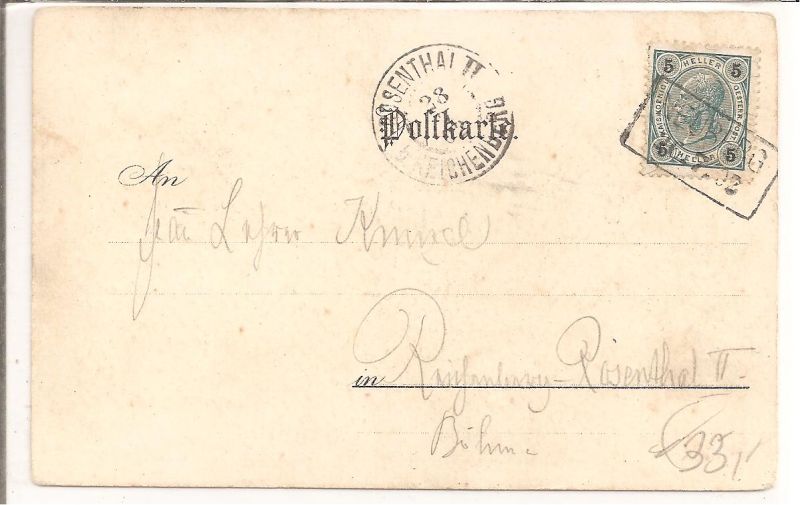 ROSENTHAL II
28
REICHENBERG
Postkarte.
5 HELLER 5
KAIS. KÖNIGL. OESTERR. POST
5 HELLER 5
02
An
Lehrer
in Reichenberg-Rosenthal II
Böhm.
33,